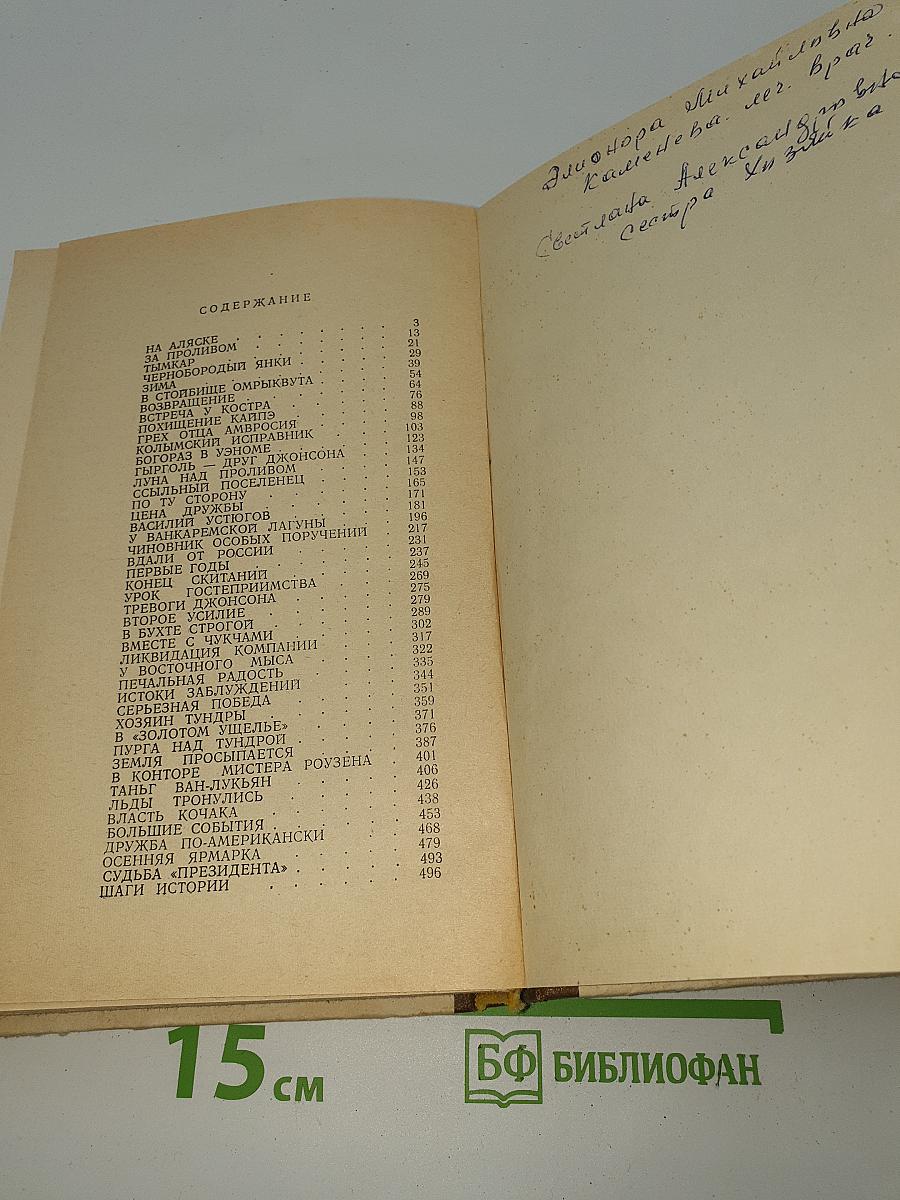 СОДЕРЖАНИЕ
НА АЛЯСКЕ 3
ЗА ПРОЛИВОМ 13
ТЫМКАР 21
ЧЕРНОБОРОДЫЙ ЯНКИ 29
ЗИМА 39
В СТОЙБИЩЕ ОМРЫКВУТА 54
ВОЗВРАЩЕНИЕ 64
ВСТРЕЧА У КОСТРА 76
ПОХИЩЕНИЕ КАЙПЭ 88
ГРЕХ ОТЦА АМВРОСИЯ 98
КОЛЫМСКИЙ ИСПРАВНИК 103
БОГОРАЗ В УЭНОМЕ 123
ГЫРГОЛЬ — ДРУГ ДЖОНСОНА 134
ЛУНА НАД ПРОЛИВОМ 147
ССЫЛЬНЫЙ ПОСЕЛЕНЕЦ 153
ПО ТУ СТОРОНУ 165
ЦЕНА ДРУЖБЫ 171
ВАСИЛИЙ УСТЮГОВ 181
У ВАНКАРЕМСКОЙ ЛАГУНЫ 196
ЧИНОВНИК ОСОБЫХ ПОРУЧЕНИЙ 217
ВДАЛИ ОТ РОССИИ 231
ПЕРВЫЕ ГОДЫ 237
КОНЕЦ СКИТАНИЙ 245
УРОК ГОСТЕПРИИМСТВА 269
ТРЕВОГИ ДЖОНСОНА 275
ВТОРОЕ УСИЛИЕ 279
В БУХТЕ СТРОГОЙ 289
ВМЕСТЕ С ЧУКЧАМИ 302
ЛИКВИДАЦИЯ КОМПАНИИ 317
У ВОСТОЧНОГО МЫСА 322
ПЕЧАЛЬНАЯ РАДОСТЬ 335
ИСТОКИ ЗАБЛУЖДЕНИЙ 344
СЕРЬЕЗНАЯ ПОБЕДА 351
ХОЗЯИН ТУНДРЫ 359
В «ЗОЛОТОМ УЩЕЛЬЕ» 371
ПУРГА НАД ТУНДРОЙ 376
ЗЕМЛЯ ПРОСЫПАЕТСЯ 387
В КОНТОРЕ МИСТЕРА РОУЗЕНА 401
ТАНЬГ ВАН-ЛУКЬЯН 406
ЛЬДЫ ТРОНУЛИСЬ 426
ВЛАСТЬ КОЧАКА 438
БОЛЬШИЕ СОБЫТИЯ 453
ДРУЖБА ПО-АМЕРИКАНСКИ 468
ОСЕННЯЯ ЯРМАРКА 479
СУДЬБА «ПРЕЗИДЕНТА» 493
ШАГИ ИСТОРИИ 496
Элионора Михайловна
Каменева. леч. врач.
Светлана Александровна
сестра хозяйка
15 см
БФ БИБЛИОФАН